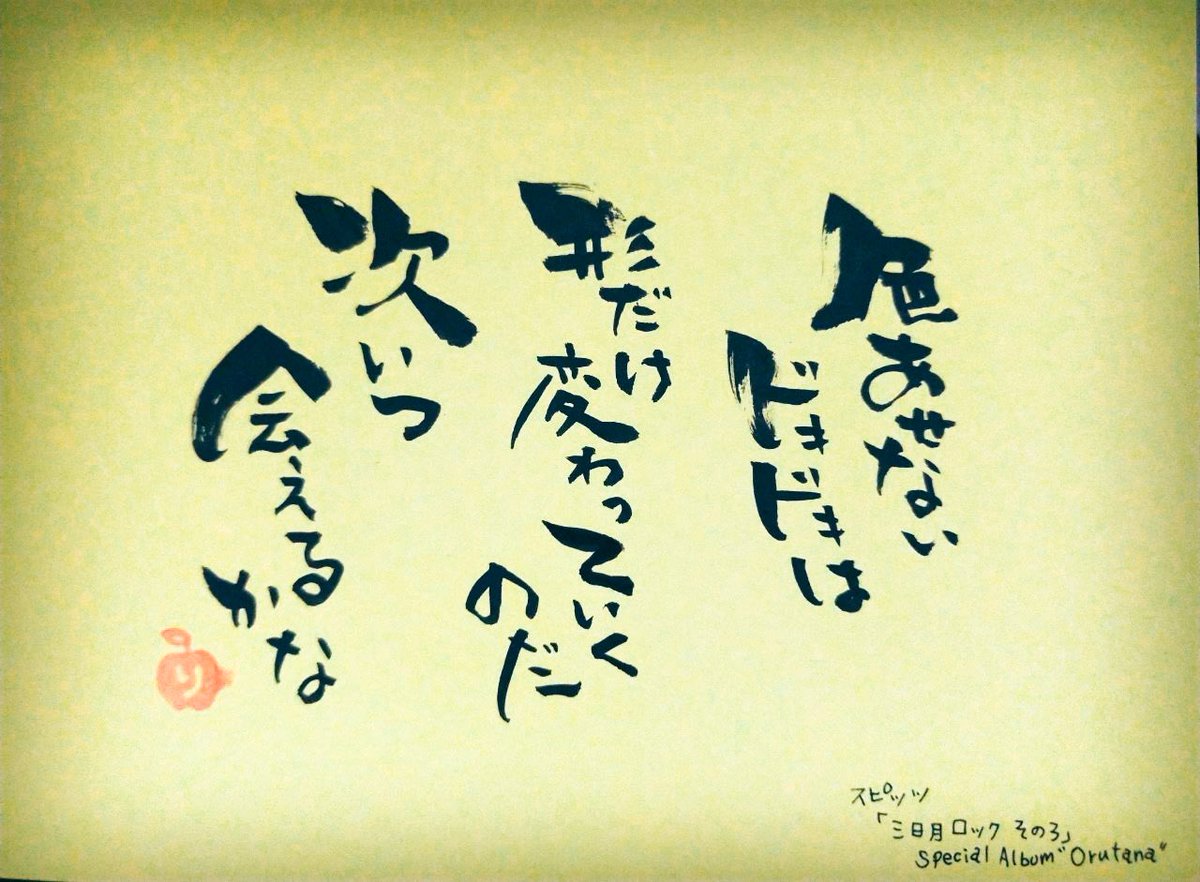 色あせない
ドキドキは
形だけ
変わっていく
のだ
次いつ
会えるかな
り
スピッツ
「三日月ロック その3」
Special Album "Orutana"